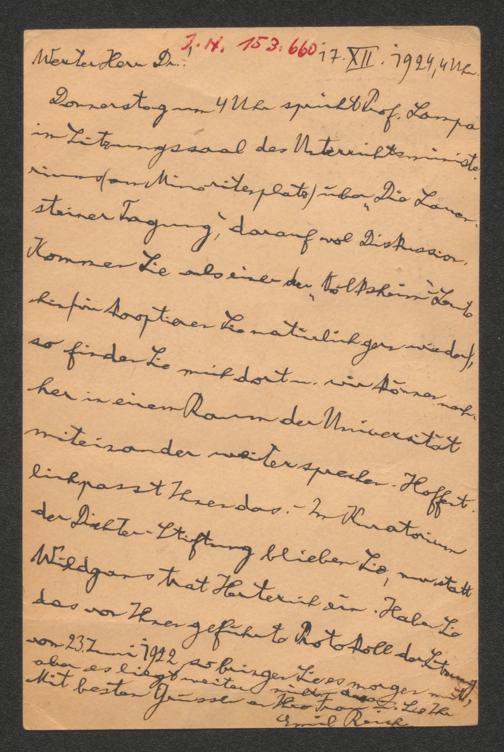 I.N. 153.660
17. XII. 1924, 4 Uhr.
Werter Herr Dr.!
Donnerstag um 4 Uhr spricht Prof. Lampa
im Sitzungssaal des Unterrichtsministe-
riums (am Minoritenplatz) über „Die Lauen-
steiner Tagung", darauf wol Diskussion.
Kommen Sie als einer der „Volksheim"-Leute
hin (wir kooptieren Sie natürlich gern wieder),
so finden Sie mich dort u. wir können nach-
her in einem Raum der Universität
miteinander weiter sprechen. Hoffent-
lich passt Ihnen das. - Im Kuratorium
der Dichter-Stiftung blieben Sie, nur statt
Wildgans trat Herterich ein. Habe Sie
das von Ihnen geführte Protokoll der Sitzung
vom 23. Juni 1922, so bringen Sie es morgen mit,
aber es liegt weiter nichts
Mit besten Grüssen an Ihre Frau Ihr
Emil Reich